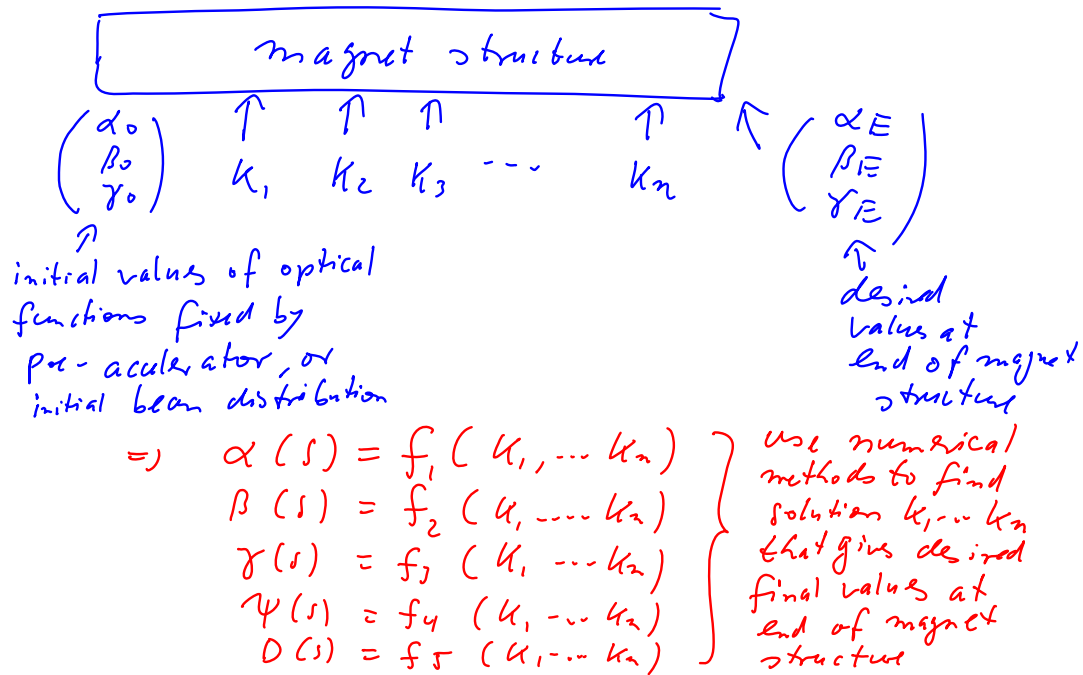 magnet structure
α₀
β₀
γ₀
K₁ K₂ K₃ --- Kn
αE
βE
γE
initial values of optical
functions fixed by
pre-accelerator, or
initial beam distribution
desired
values at
end of magnet
structure
=> α(s) = f₁ (K₁, ... Kn)
β(s) = f₂ (K₁ ..... Kn)
γ(s) = f₃ (K₁ ... Kn)
Ψ(s) = f₄ (K₁ ... Kn)
D(s) = f₅ (K₁ ... Kn)
use numerical
methods to find
solution K₁ ... Kn
that gives desired
final values at
end of magnet
structure